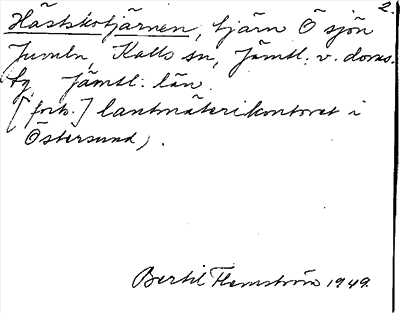 2.
Hästskotjärnen, tjärn Ö sjön
Juveln, Kalls sn, Jämtl. v. doms.
tg, Jämtl. län.
[forts.] lantmäterikontoret i
Östersund).
Bertil Flemström 1949.